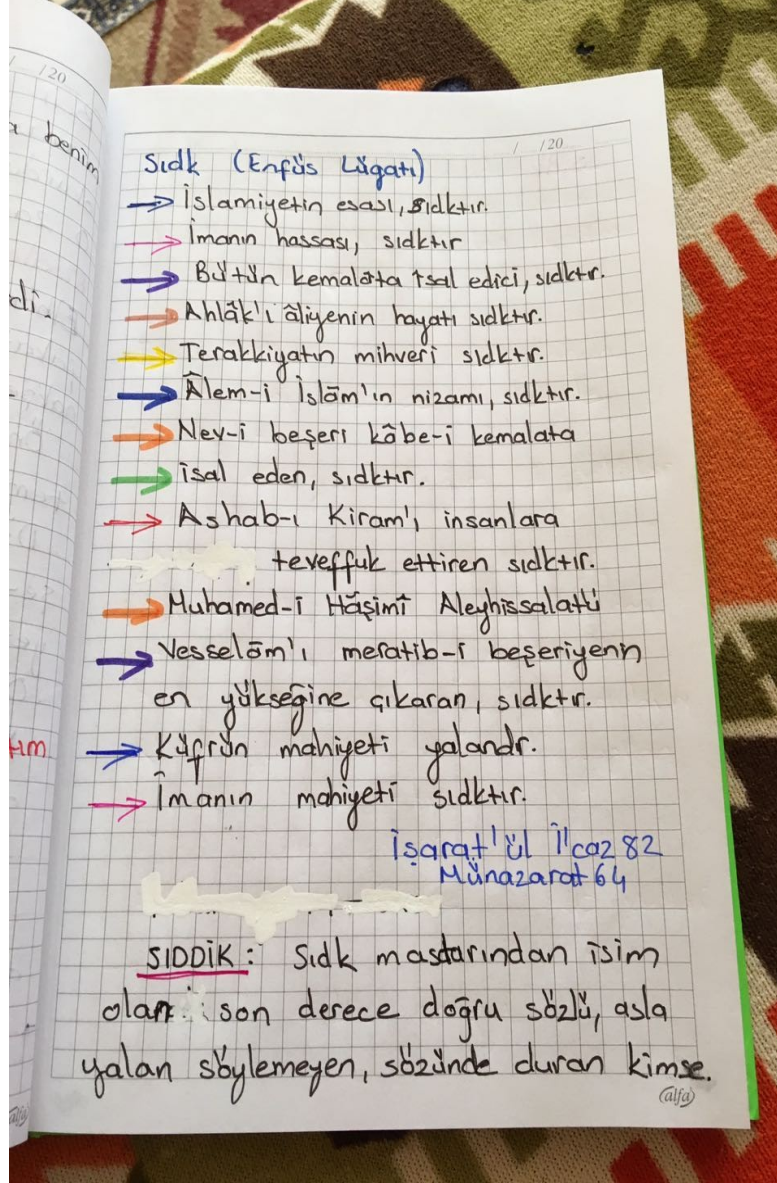 / /20
/ /20
benim
di.
tım
Sıdk (Enfüs Lügatı)
→ İslamiyetin esası, sıdktır.
→ İmanın hassası, sıdktır
→ Bütün kemalâta îsal edici, sıdktır.
→ Ahlâk'ı âliyenin hayatı sıdktır.
→ Terakkiyatın mihveri sıdktır.
→ Âlem-i İslâm'ın nizamı, sıdktır.
→ Nev-i beşeri kâbe-i kemalata
→ îsal eden, sıdktır.
→ Ashab-ı Kiram'ı insanlara
teveffuk ettiren sıdktır.
→ Muhamed-i Hâşimî Aleyhissalatü
→ Vesselâm'ı meratib-i beşeriyenin
en yükseğine çıkaran, sıdktır.
→ Küfrün mahiyeti yalandır.
→ İmanın mahiyeti sıdktır.
İşarat'ül İ'caz 82
Münazarat 64
SIDDİK: Sıdk mastarından isim
olan son derece doğru sözlü, asla
yalan söylemeyen, sözünde duran kimse.
alfa
alfa